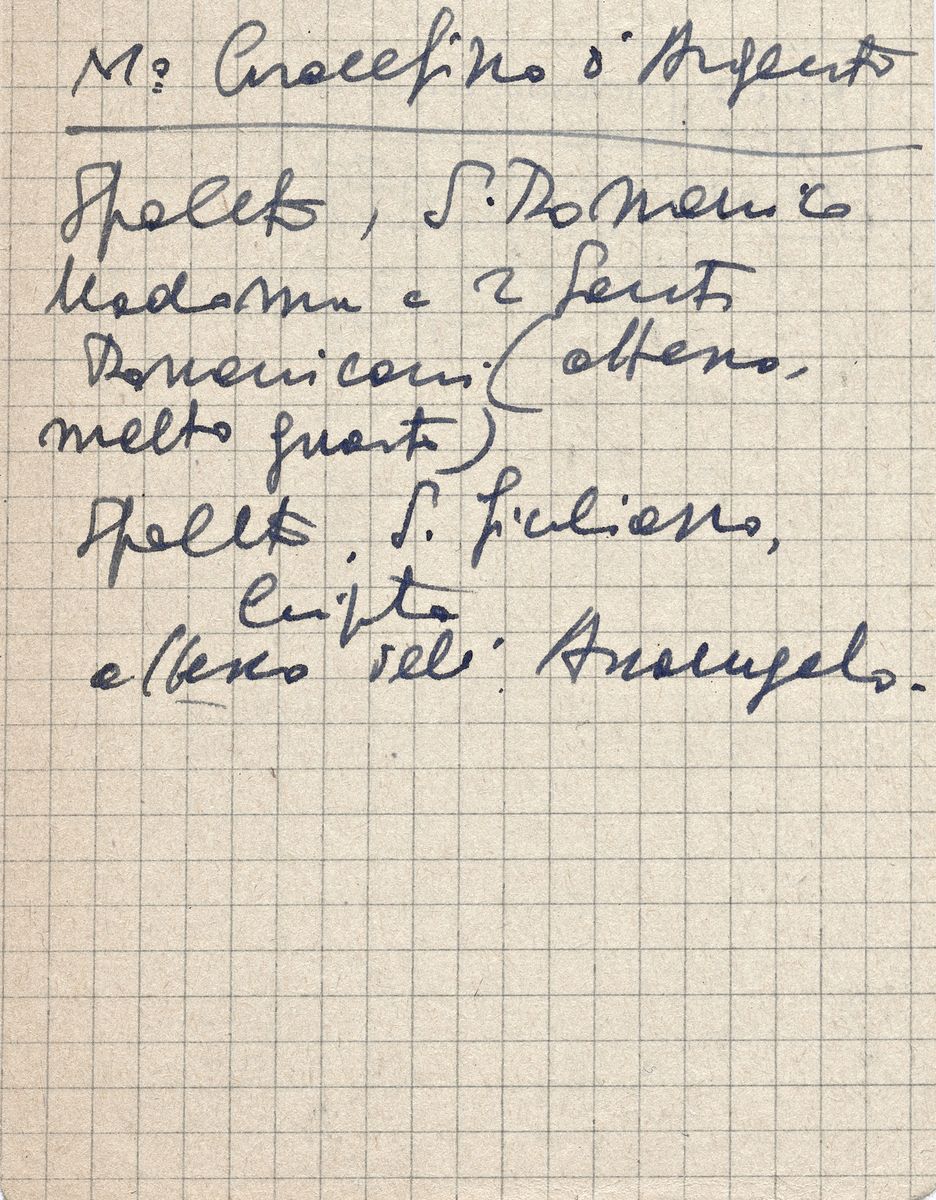 Mo Crocefisso d'Argento
Spoleto, S. Domenico
Madonna e 2 Santi
Domenicani (affresco,
molto guasto)
Spoleto, S. Giuliano,
Cripta
affresco dell'Arcangelo.